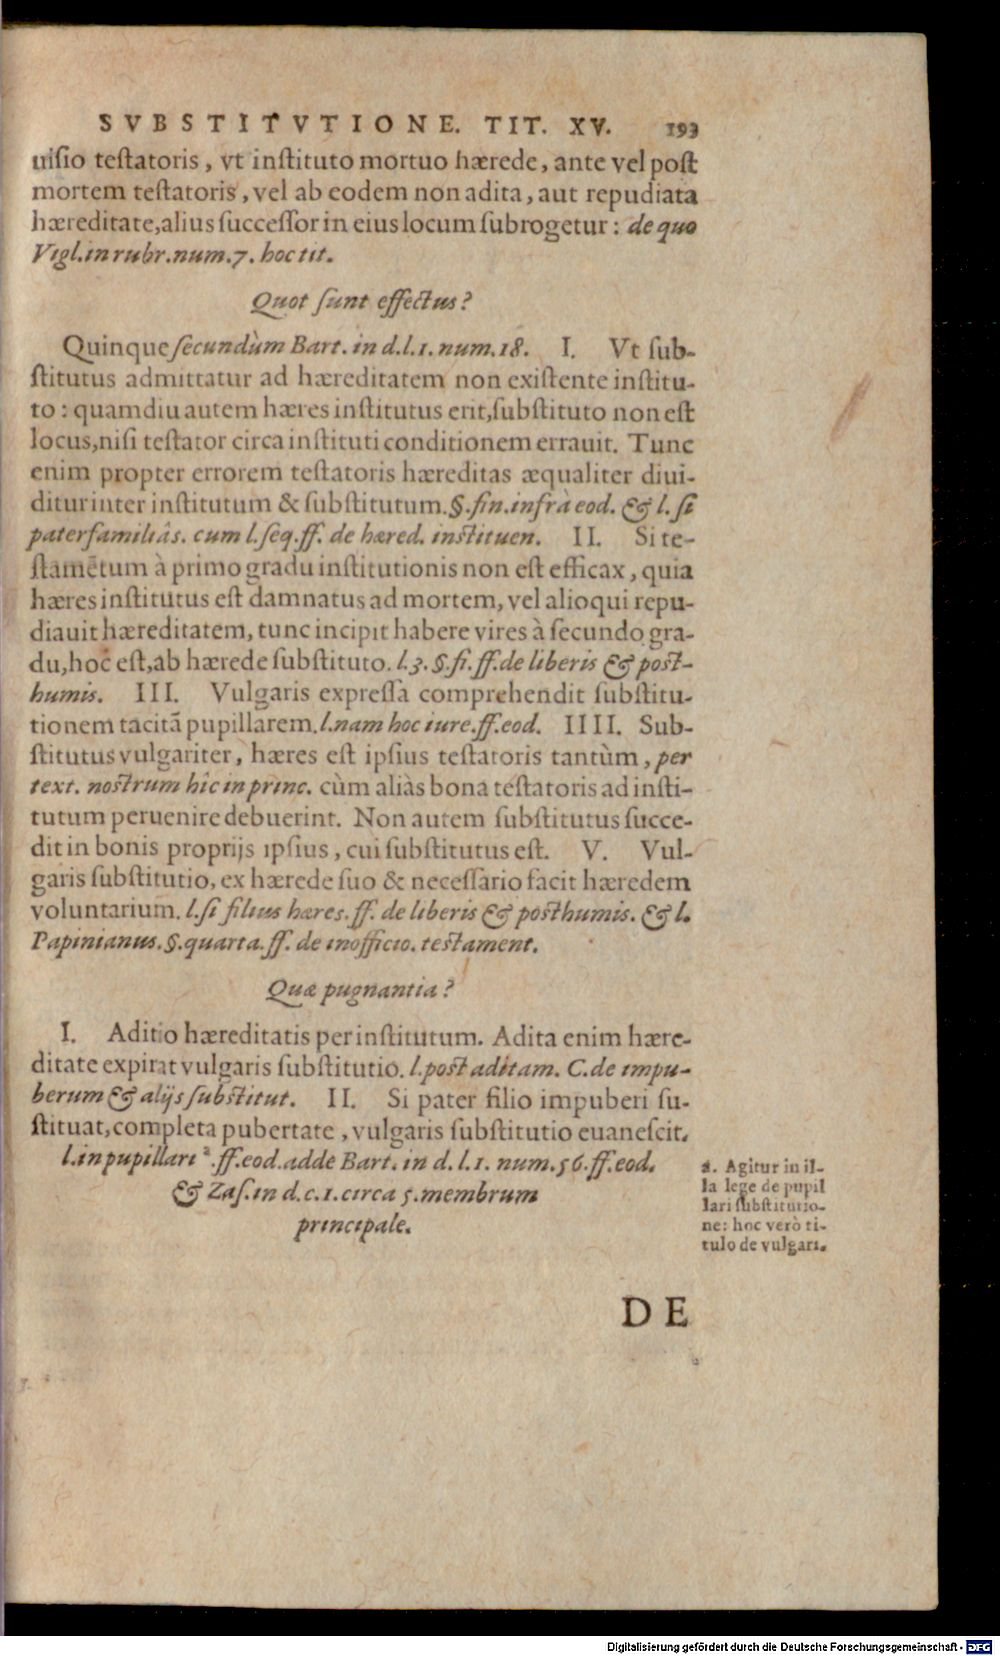 SVBSTITVTIONE. TIT. XV. 193
uisio testatoris, vt instituto mortuo hærede, ante vel post
mortem testatoris, vel ab eodem non adita, aut repudiata
hæreditate, alius successor in eius locum subrogetur: de quo
Vigl. in rubr. num. 7. hoc tit.
Quot sunt effectus?
Quinque secundùm Bart. in d. l. 1. num. 18. I. Vt sub-
stitutus admittatur ad hæreditatem non existente institu-
to: quamdiu autem hæres institutus erit, substituto non est
locus, nisi testator circa instituti conditionem errauit. Tunc
enim propter errorem testatoris hæreditas æqualiter diui-
ditur inter institutum & substitutum. §. fin. infrà eod. & l. si
paterfamiliâs. cum l. seq. ff. de hæred. instituen. II. Si te-
stamẽtum à primo gradu institutionis non est efficax, quia
hæres institutus est damnatus ad mortem, vel alioqui repu-
diauit hæreditatem, tunc incipit habere vires à secundo gra-
du, hoc est, ab hærede substituto. l. 3. §. fi. ff. de liberis & post-
humis. III. Vulgaris expressa comprehendit substitu-
tionem tacitã pupillarem. l. nam hoc iure. ff. eod. IIII. Sub-
stitutus vulgariter, hæres est ipsius testatoris tantùm, per
text. nostrum hîc in princ. cùm aliàs bona testatoris ad insti-
tutum peruenire debuerint. Non autem substitutus succe-
dit in bonis proprijs ipsius, cui substitutus est. V. Vul-
garis substitutio, ex hærede suo & necessario facit hæredem
voluntarium. l. si filius hæres. ff. de liberis & posthumis. & l.
Papinianus. §. quarta. ff. de inofficio. testament.
Quæ pugnantia?
I. Aditio hæreditatis per institutum. Adita enim hære-
ditate expirat vulgaris substitutio. l. post aditam. C. de impu-
berum & alijs substitut. II. Si pater filio impuberi su-
stituat, completa pubertate, vulgaris substitutio euanescit.
l. in pupillari ª. ff. eod. adde Bart. in d. l. 1. num. 56. ff. eod.
& Zas. in d. c. 1. circa 5. membrum
principale.
a. Agitur in il-
la lege de pupil
lari substitutio-
ne: hoc verò ti-
tulo de vulgari.
DE
Digitalisierung gefördert durch die Deutsche Forschungsgemeinschaft - DFG